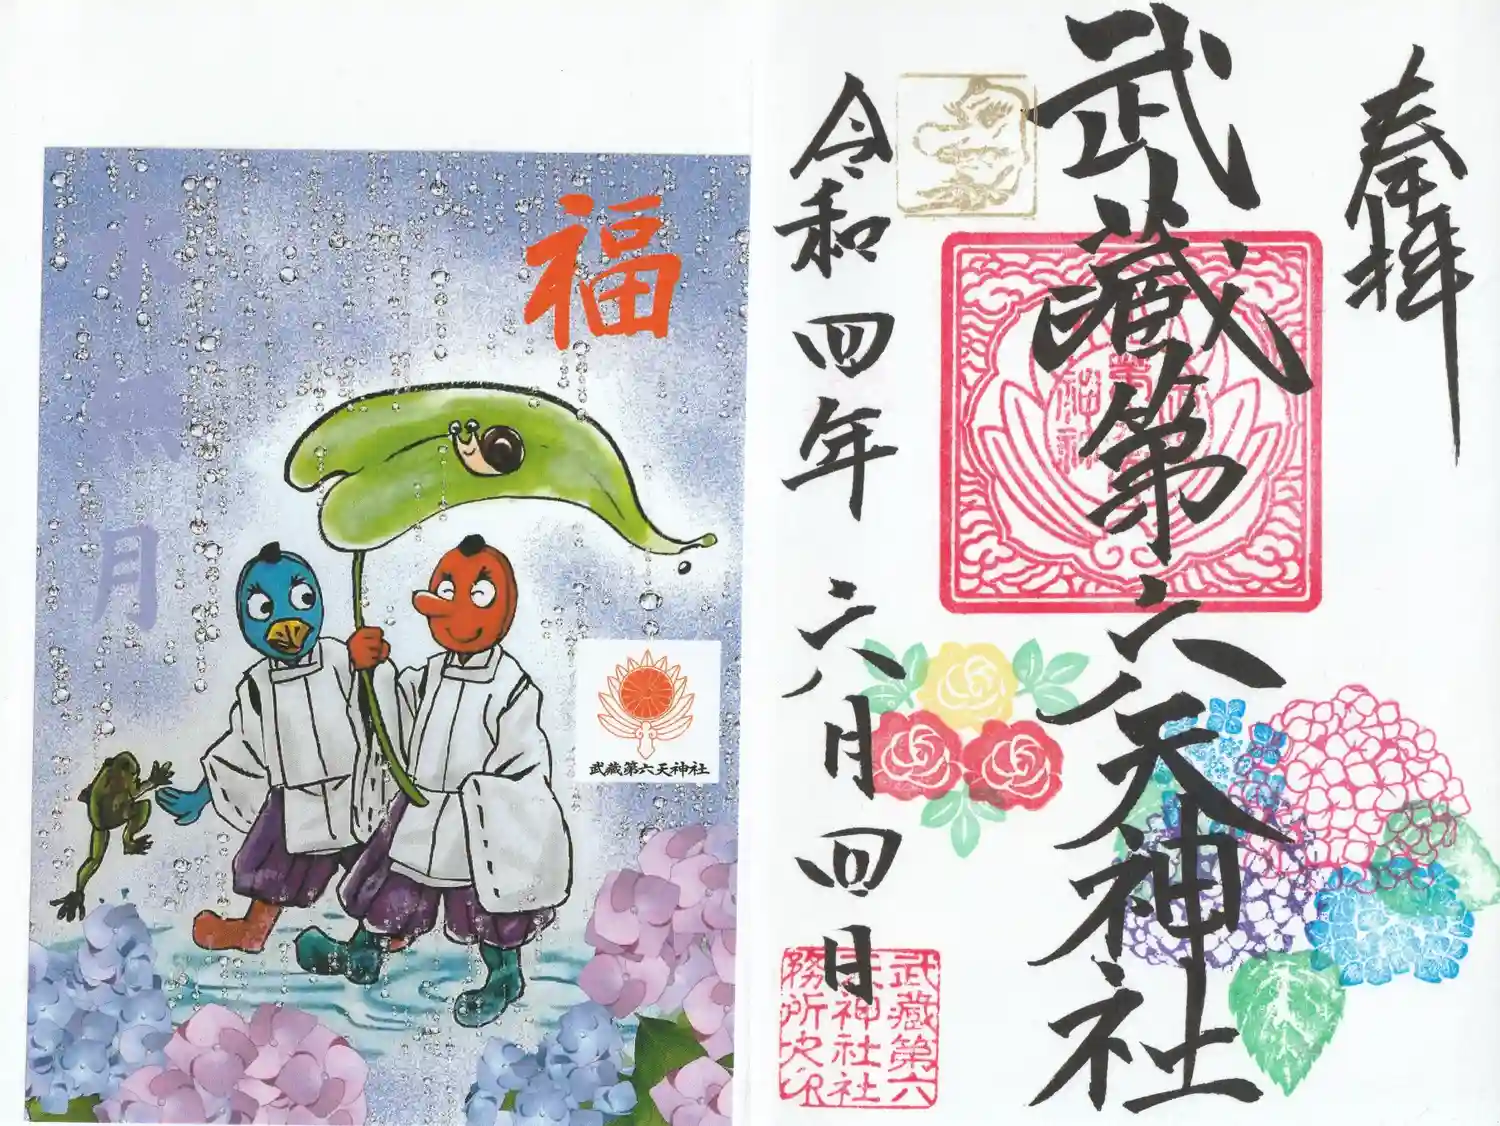 奉拝
武藏第六天神社
令和四年六月四日
武藏第六
天神社社
務所之印
福
水無月
武藏第六天神社